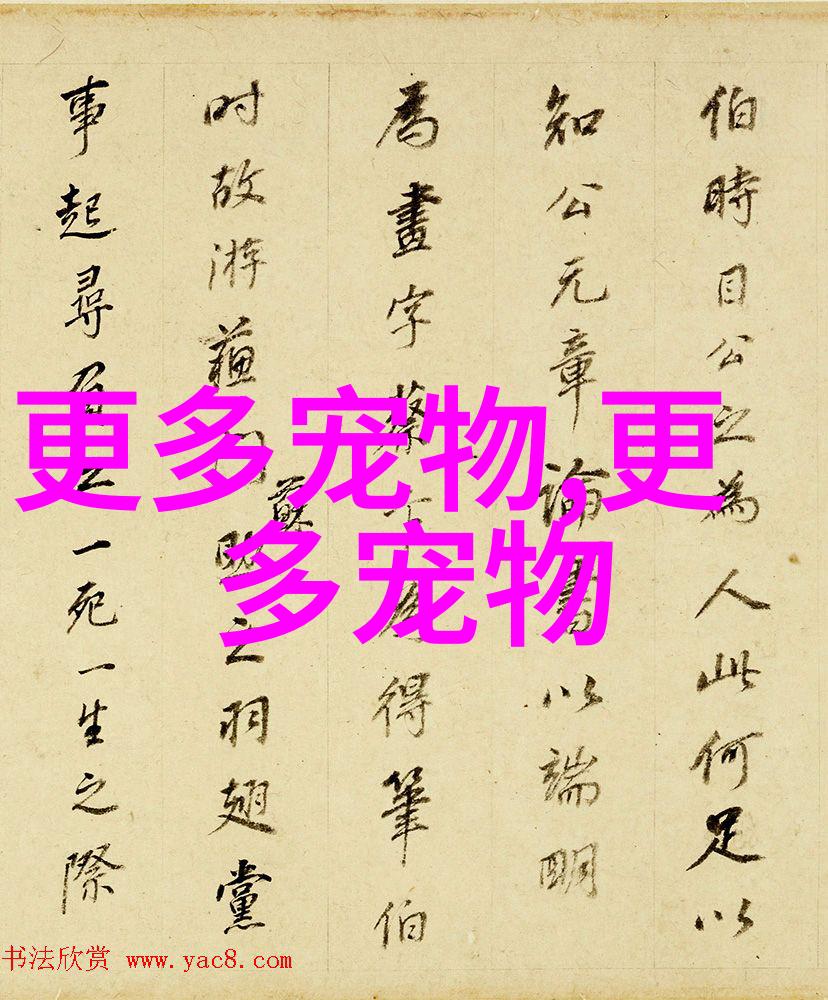 伯時目公之為人此何足以
知公元章論書以端明
為畫字蔡得筆伯
时故游蘓助之羽翅黨
事起尋之一死一生之際
更多宠物,更
多宠物
书法欣赏 www.yac8.com